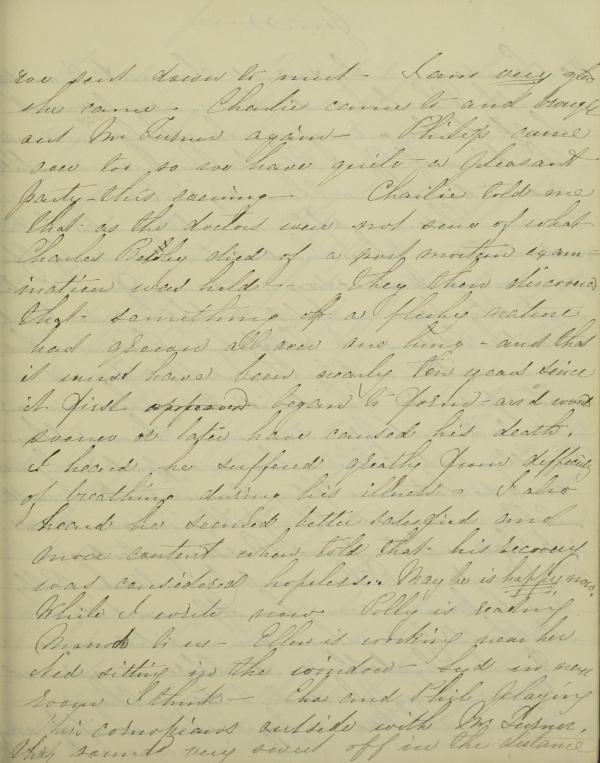 we sent down to meet - I am very glad
she came - Charlie came to and brought
out Mr Turner again - Philip came
over too so we have quite a pleasant
party this evening - Charlie told me
that as the doctors were not sure of what
Charles died of a post mortem exam-
ination was held - they then discovered
that something of a fleshy nature
had grown all over one lung - and that
it must have been nearly ten years since
it first began to form - and would
sooner or later have caused his death.
I heard he suffered greatly from difficulty
of breathing during his illness - I also
heard he seemed better satisfied and
more content when told that his recovery
was considered hopeless. May be is happy now.
While I write now Polly is reading
to us - Ellen is working near her
Ned sitting in the window - Syd in next
room I think - Cha and Phil playing
their cornopians outside with Mr Turner.
They sound very sweet off in the distance